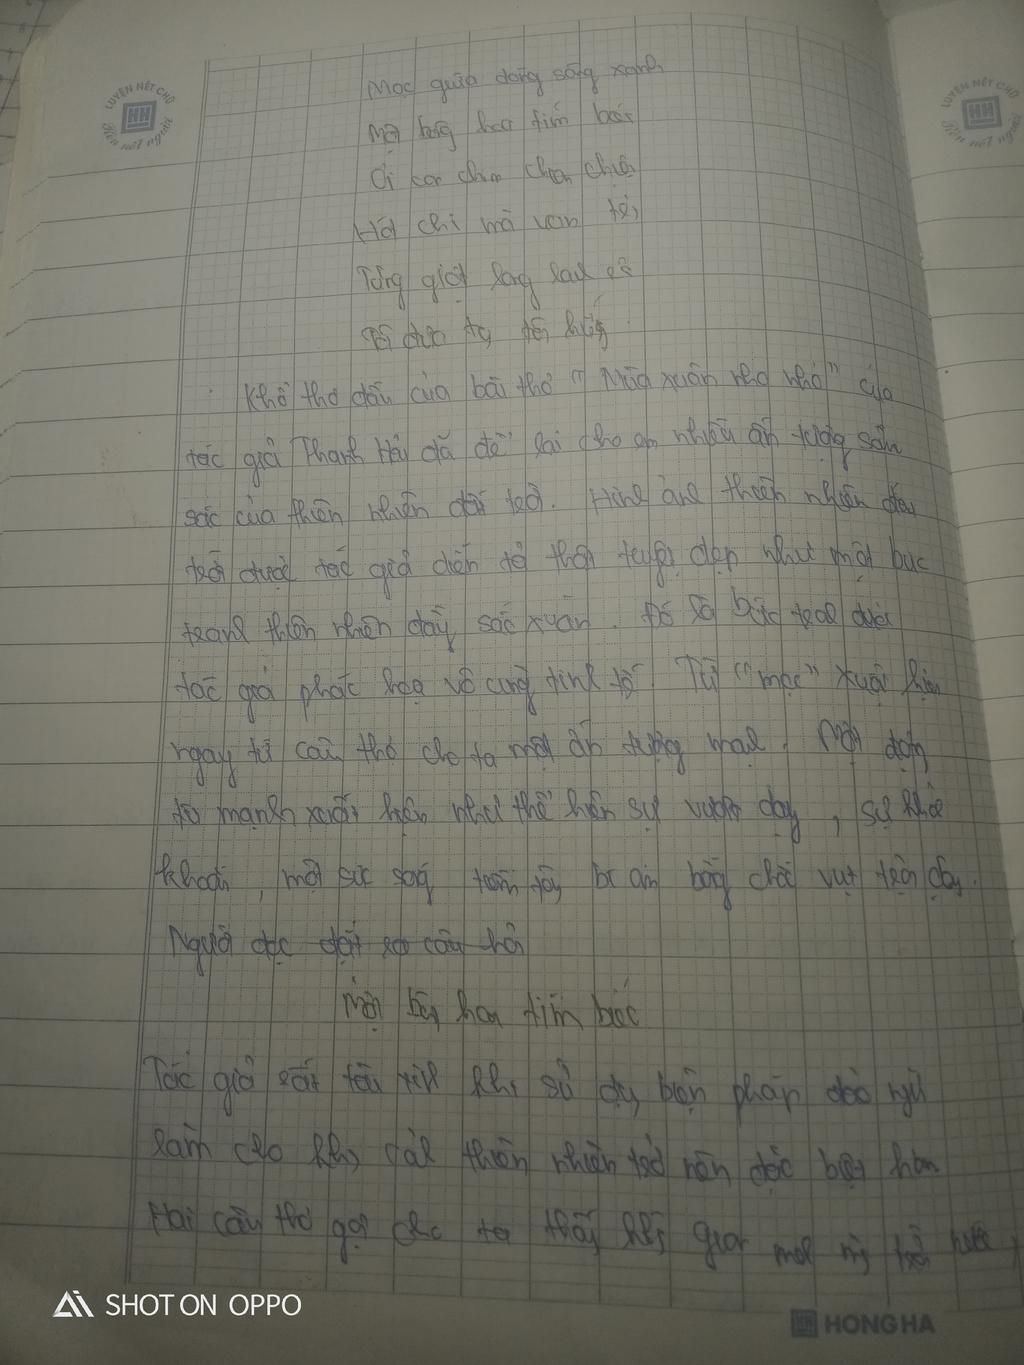 LUYỆN NÉT CHỮ
Rèn nết người
LUYỆN NÉT CHỮ
Rèn nết người
Mọc giữa dòng sông xanh
Một bông hoa tím biếc
Ơi con chim chiền chiện
Hót chi mà vang trời
Từng giọt long lanh rơi
Tôi đưa tay tôi hứng
Khổ thơ đầu của bài thơ "Mùa xuân nho nhỏ" của
tác giả Thanh Hải đã để lại cho em nhiều ấn tượng sâu
sắc của thiên nhiên đất trời. Hình ảnh thiên nhiên đất
trời được tác giả diễn tả thật tuyệt đẹp như một bức
tranh thiên nhiên đầy sắc xuân. Đó là bức tranh được
tác giả phác họa vô cùng tinh tế. Từ "mọc" xuất hiện
ngay từ câu thơ cho ta một ấn tượng mạnh. Một động
từ mạnh xuất hiện như thể hiện sự vươn dậy, sự khỏe
khoắn, một sức sống tràn đầy bỗng chốc vụt trận dậy.
Người đọc đặt ra câu hỏi
Một bông hoa tím biếc
Tác giả rất tài tình khi sử dụng biện pháp đảo ngữ
làm cho khung cảnh thiên nhiên trở nên đặc biệt hơn
Hai câu thơ gợi cho ta thấy không gian mênh mông trời nước,
SHOT ON OPPO
HONG HA